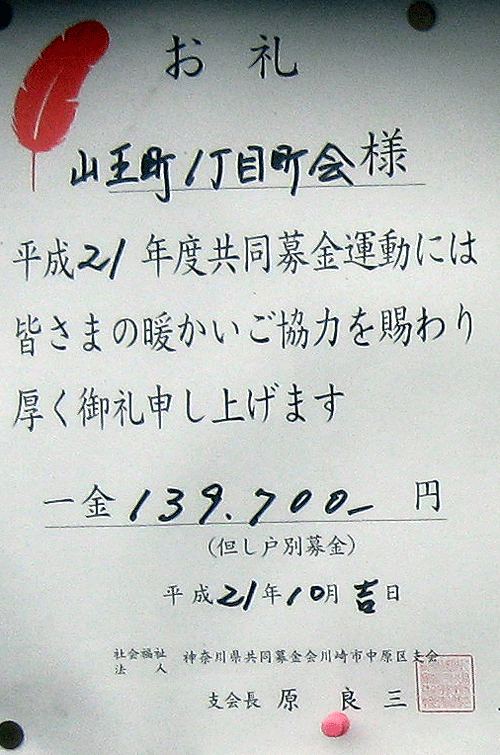 お礼
山王町1丁目町会様
平成21年度共同募金運動には
皆さまの暖かいご協力を賜わり
厚く御礼申し上げます
一金139.700-円
(但し戸別募金)
平成21年10月吉日
社会福祉法人 神奈川県共同募金会川崎市中原区支会
支会長 原 良三